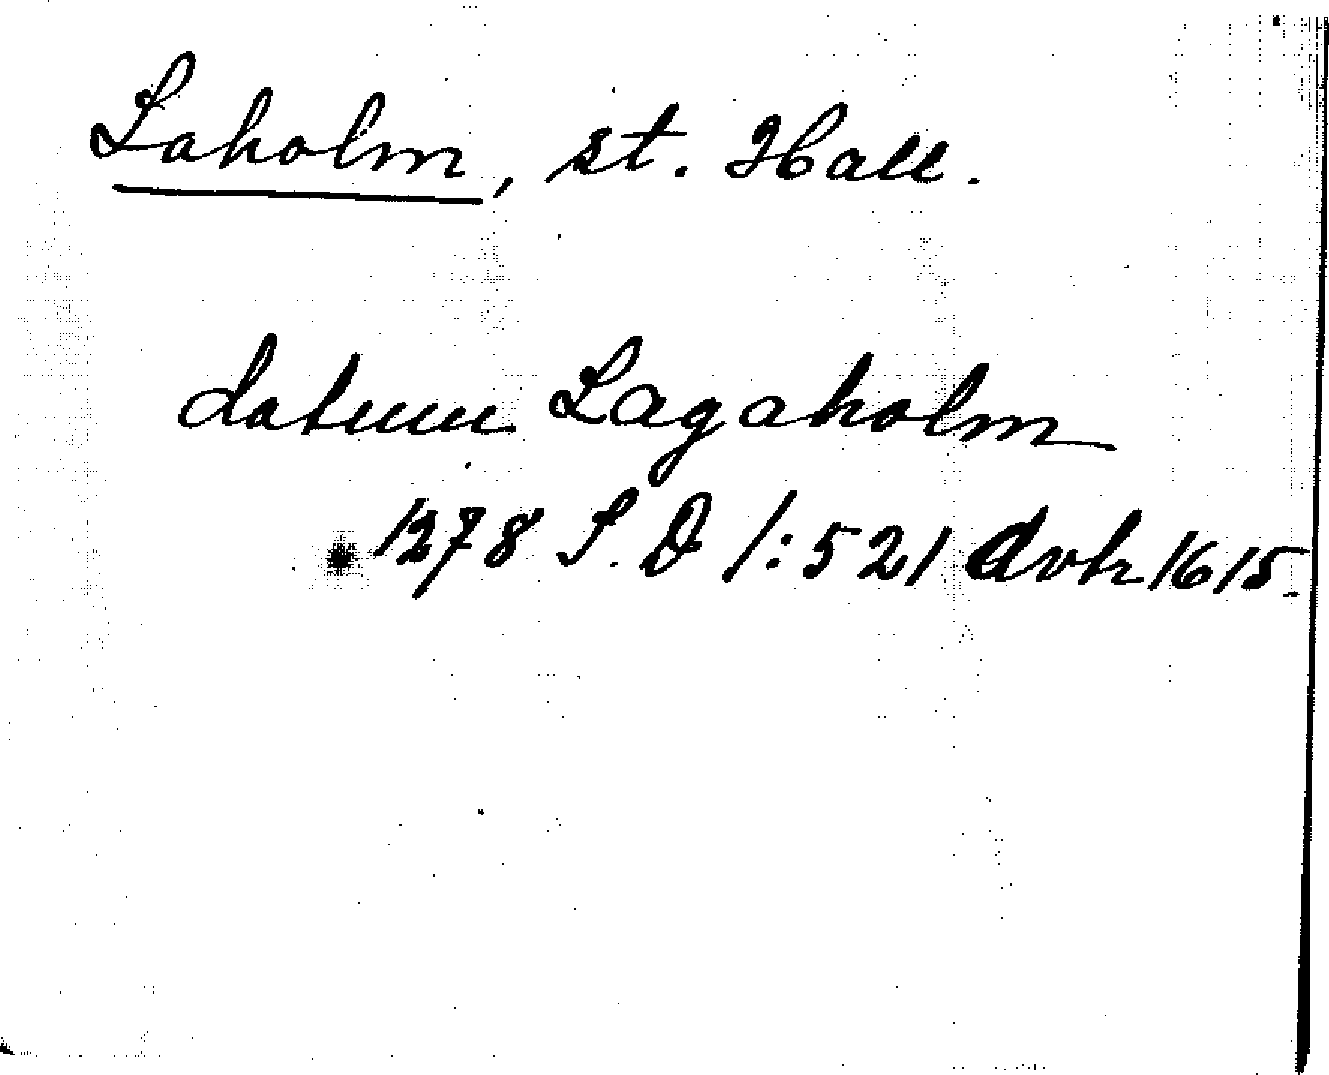 Laholm, st. Hall.
datum Lagaholm
1278 S.D 1:521 Avskr 1615